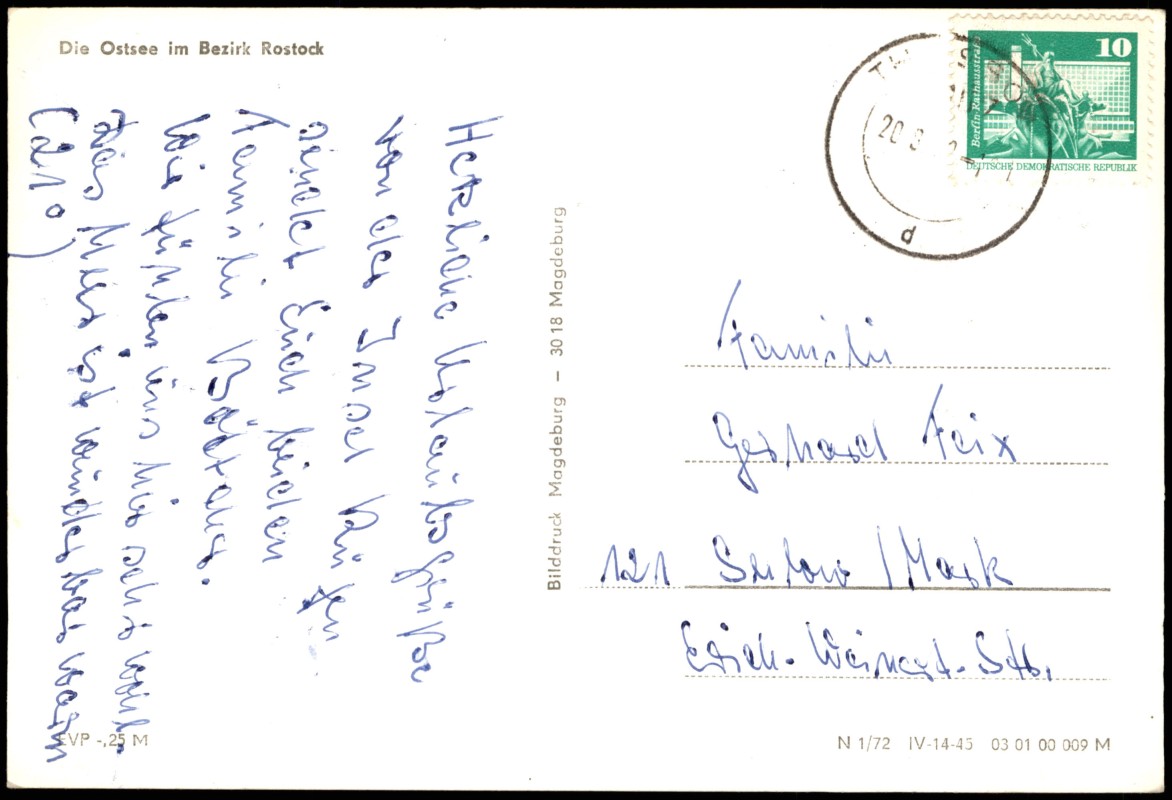 Die Ostsee im Bezirk Rostock
Herzliche Urlaubsgrüße
von der Insel Rügen
sendet Euch beiden
Familie
Wir fühlen uns hier sehr wohl.
Das Meer ist wunderbar warm
(21°)
EVP -,25 M
Bilddruck Magdeburg – 3018 Magdeburg
10
Berlin·Rathausstraße
DEUTSCHE DEMOKRATISCHE REPUBLIK
20 8
d
Familie
Gerhard Feix
121 Seelow /Mark
Erich-Weinert-Str.
N 1/72 IV-14-45 03 01 00 009 M